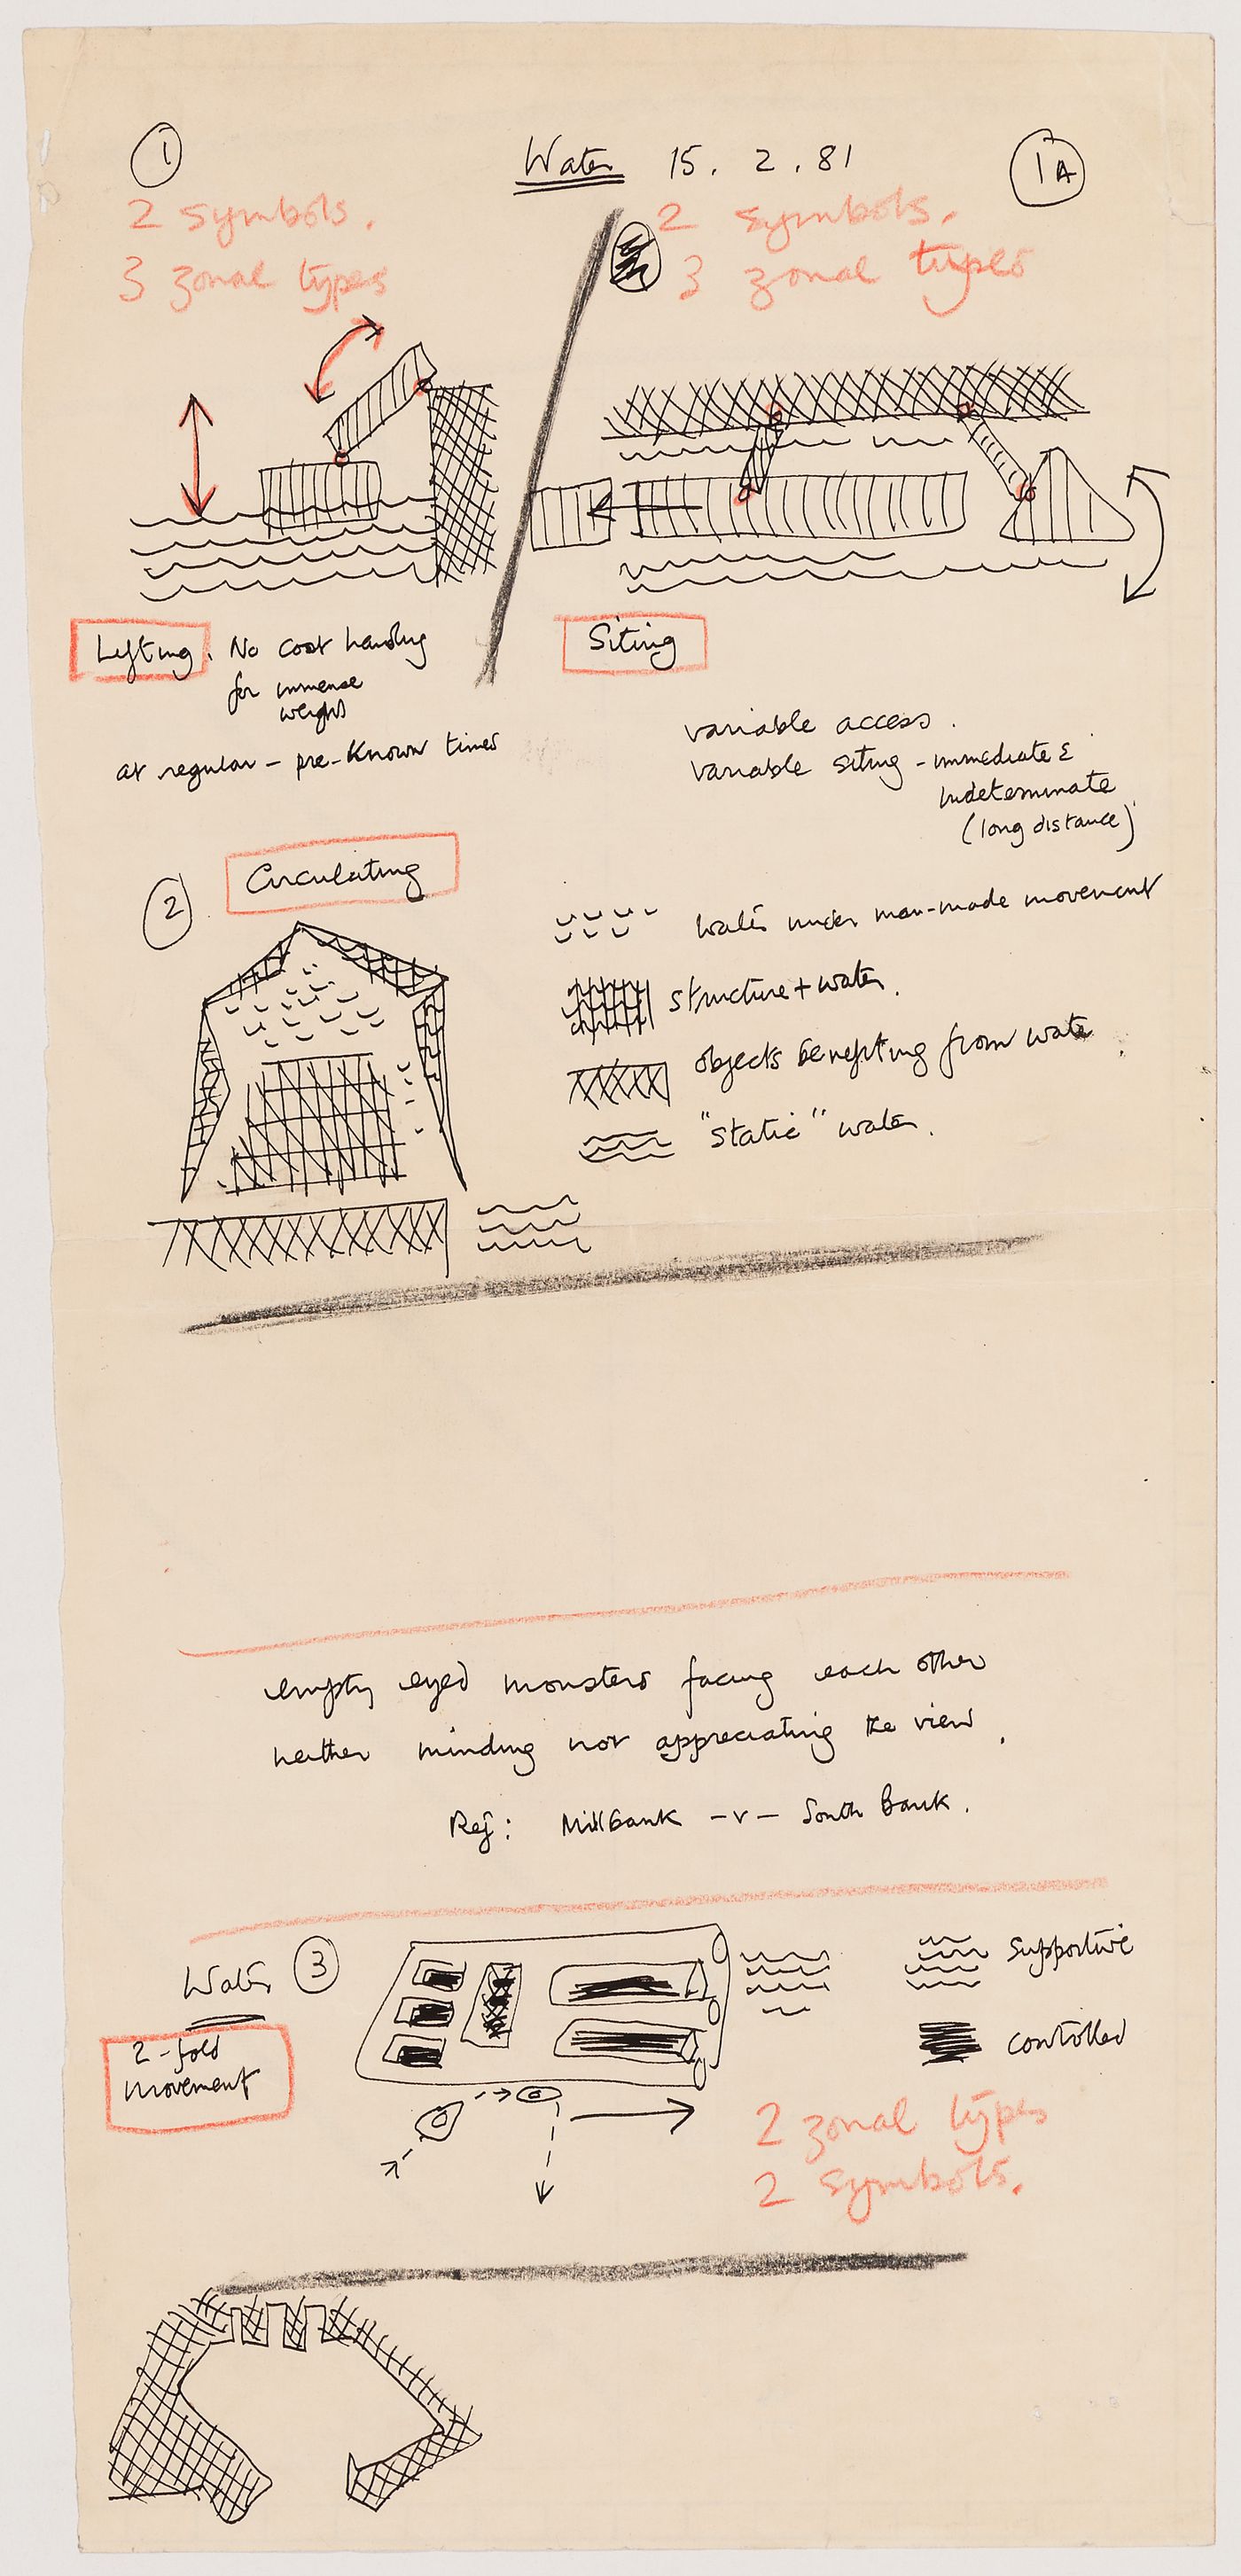 1
Water 15. 2. 81
1A
2 symbols.
3 zonal types
2 symbols.
3 zonal types
Lifting. No cost handling
for immense
weight
at regular – pre-known times
Siting
variable access.
variable siting – immediate &
indeterminate
(long distance)
2
Circulating
water under man-made movement
structure + water.
objects benefiting from water.
"static" water.
empty eyed monsters facing each other
neither minding nor appreciating the view.
Ref: Millbank -v- South Bank.
Water 3
2-fold
movement
supportive
controlled
2 zonal types
2 symbols.